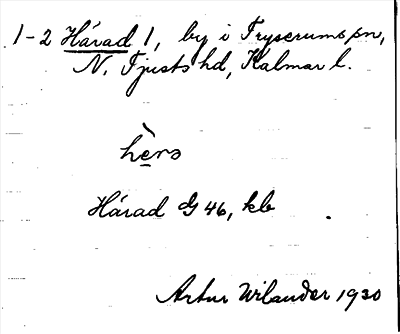 1-2 Hárad 1, by i Tryserums sn,
N. Tjusts hd, Kalmar l.
hèrs
Hárad G 46, kb
Artur Wilander 1930